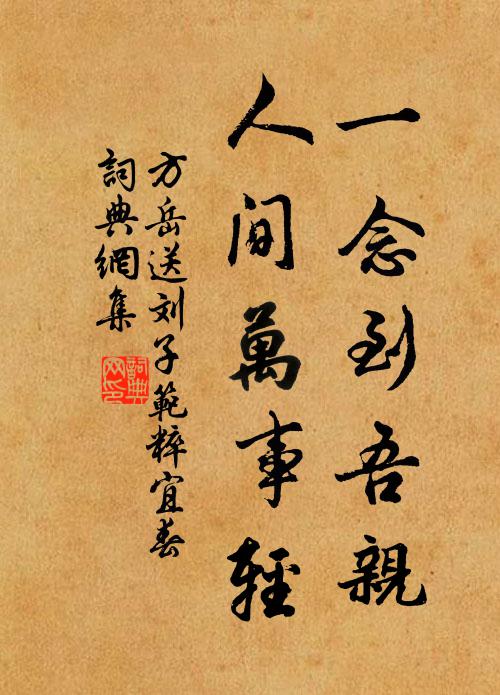 一念到吾親
人間萬事輕
方岳送刘子範粹宜春
詞典網集
詞典网印